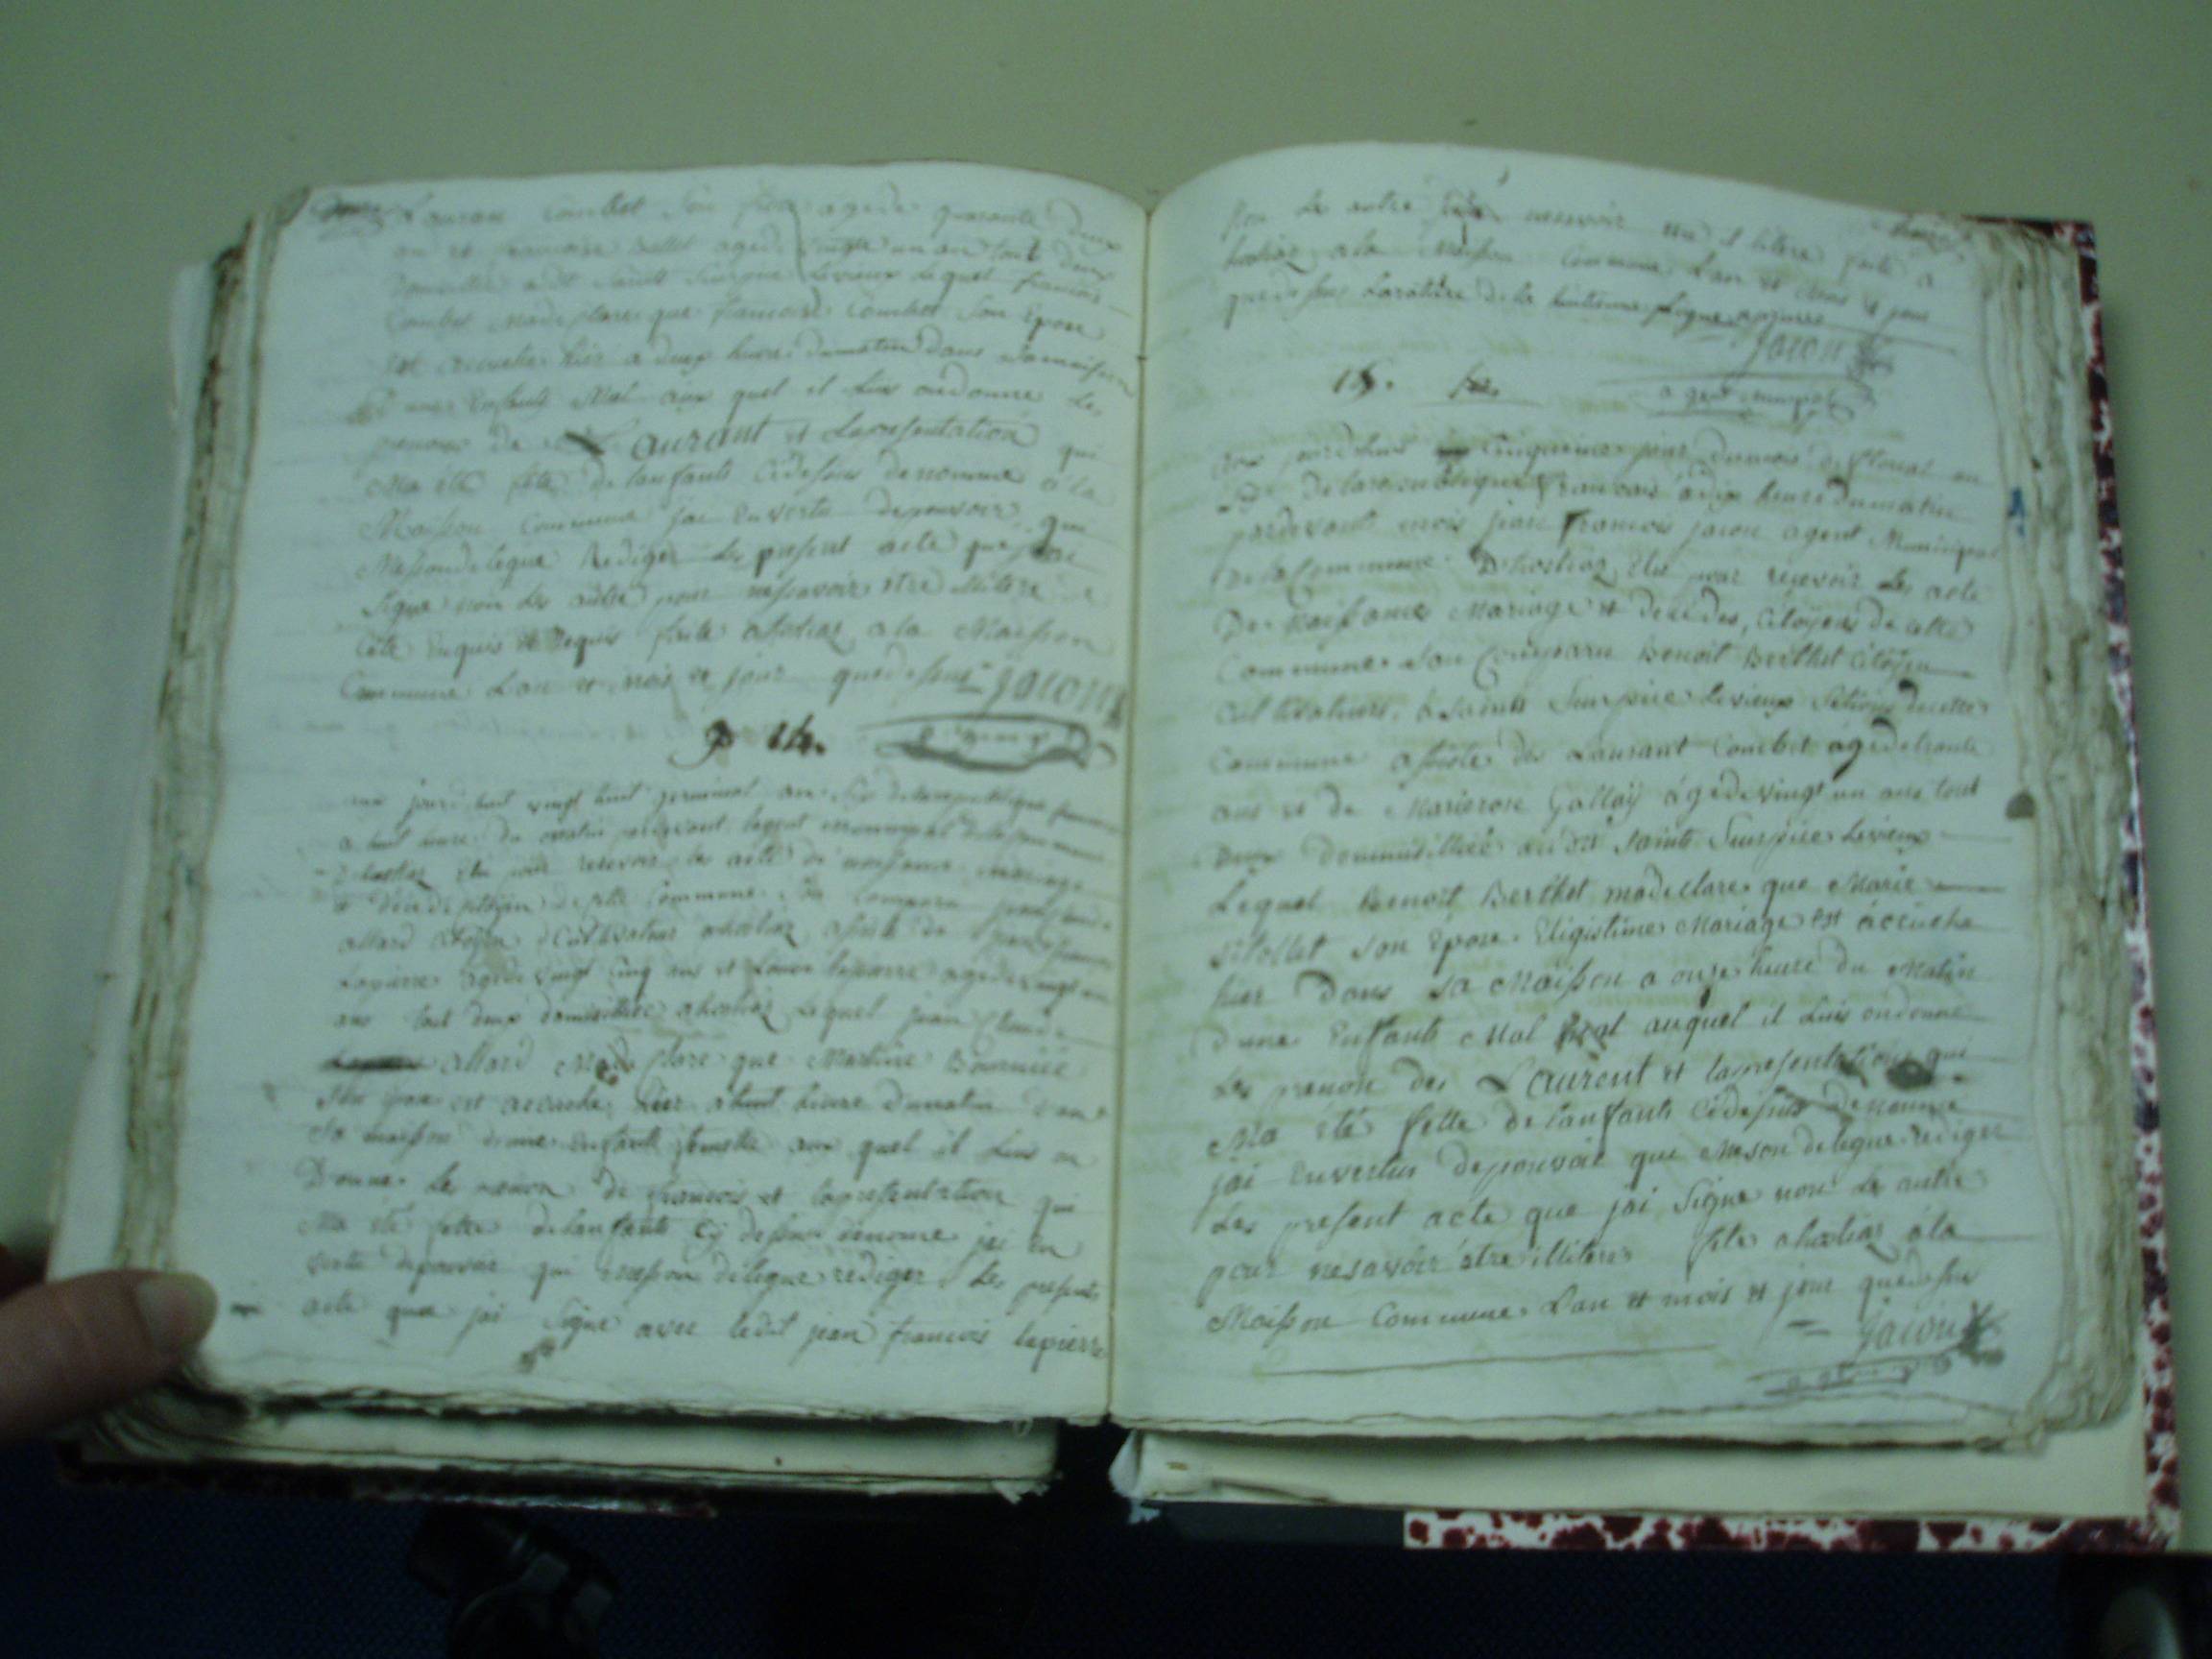 Lauran Combet Son frere agede quarante deux
an et francoise Gallet agede vingte un an tout deux
domicillie audt Sainte Surpice Levieux Lequel francois
Combet Made plare que francoise Combet Son Epose
est accuchee hier a deux heure dumatin dans samaison
d'une Enfants Mal aux quel il luis andonne Les
prenons de Laurant et Lapresentation qui
Ma été fete de lanfants Cidessus denomme a la
Maison Commune jai Envertu depouvoir que
Messondelegue Rediger Le present acte que jai
Signe non Les autre pour nesavoir etre illitere de
Cête Enquis et Requis faite ahostiaz a la Maison
Commune Lan et mois et jour quedessus Jacon
14.
aux jourdhuit vingt huit germinal an Six delarepublique francaise
a huit heure du matin pardevant lagent municipal delacommune
dhostiaz élu pour recevoir les acte de naissance mariage
et décède sitoyen de sette Commune Sa Comparu jean Claude
allard sitoyen Cultivateur ahostiaz assiste de jean francois
Lapierre agede vingt Cinq ans et Louise lapierre agede vingt un
ans tout deux domicillie ahostiaz Lequel jean Claude
allard Made plare que Martine
Son Epose est accuchee hier a huit heure Dumatin dans
Sa maison dunne Enfants femelle aux quel il Luis en
Donne Le nenon de francois et lapresentation qui
Ma été fette delanfants Cy dessus denomé jai en
vertu depouvoir qui messon delegue rediger Les present
acte que jai Signe avec ledit jean francois lapierre
Non Les autre pour nesavoir etre illitere faite a
hostiaz a la Maison Commune Lan et mois et jour
quedessus Laratture de la huitieme Ligne aprouvé
Jacon
15.
agent municipal
aux jourdhuit Cinquieme jour dumois de floréal an
Six De larepublique francaise a dix heure dumatin
pardevant mois jean francois jacon agent Municipal
de la Commune Dhostiaz Elu pour reçevoir Les acte
De Naissance Mariage et decèdes, Citoyens de cette
Commune San Comparu Benoit Berthet Citoyen
Cultivateurs, a Sainte Surpice Levieux Sétions decette
Commune assiste de Laurant Combet agede trante
ans et de Marierose Gallay agede vingt un ans tout
Deux Dommicillie audit Sainte Surpice Levieux
Lequel Benoit Berthet madeclare que Marie
Sitollet Son Epose Eligistime Mariage est accuche
hier Dans sa Maison a onze heure du Matin
Dune Enfants Mal auquel il Luis endonne
Les prenon de Laurent et lapresentation qui
Ma été fette de lanfants Cidessus Denomme
jai Envertus depouvoir que Meson delegue rediger
Les present acte que jai Signe non Les autre
pour nesavoir être illitere fete ahostiaz a la
Maison Commune Lan et mois et jour quedessus
Jacon